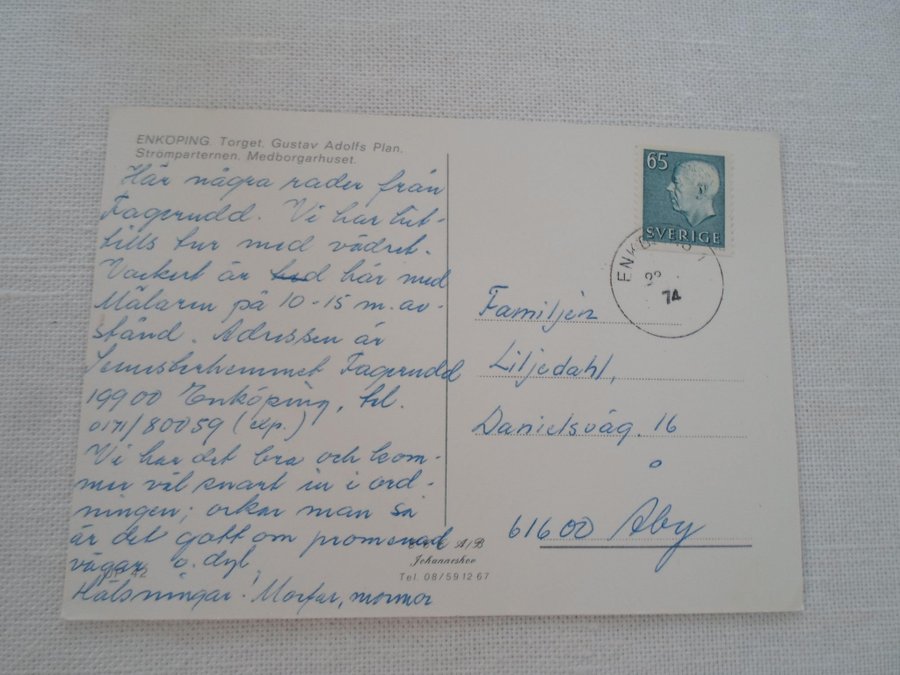 ENKÖPING. Torget. Gustav Adolfs Plan.
Strömparterren. Medborgarhuset.
Här några rader från
Fagerudd. Vi har hit-
tills tur med vädret.
Vackert är här med
Mälaren på 10-15 m. av-
stånd. Adressen är
Semesterhemmet Fagerudd
19900 Enköping, tel.
0171/80059 (exp.)
Vi har det bra och kom-
mer väl snart in i ord-
ningen; orkar man så
är det gott om promenad
vägar o.dyl.
Hälsningar: Morfar, mormor
65
SVERIGE
ENKÖPING 1
22
74
Familjen
Liljedahl,
Danielsväg. 16
61600 Åby
A/B
Johanneshov
Tel. 08/59 12 67
42